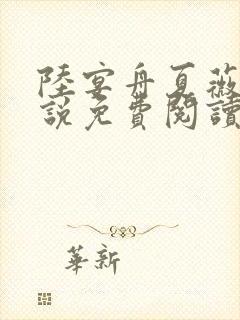 陸宴舟夏薇
說免費閱讀
華新